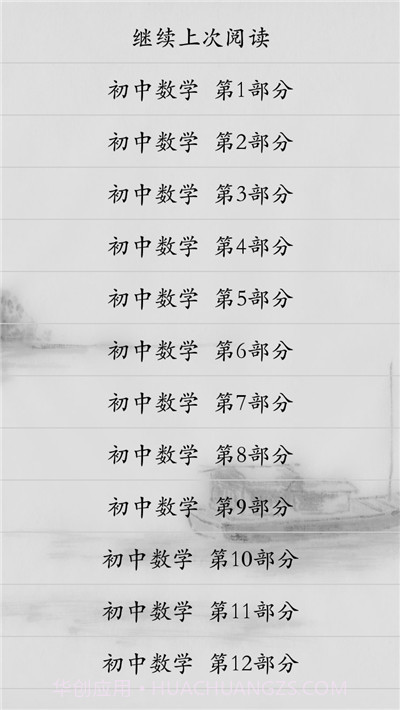 继续上次阅读
初中数学 第1部分
初中数学 第2部分
初中数学 第3部分
初中数学 第4部分
初中数学 第5部分
初中数学 第6部分
初中数学 第7部分
初中数学 第8部分
初中数学 第9部分
初中数学 第10部分
初中数学 第11部分
初中数学 第12部分
华创应用·HUACHUANGZS.COM